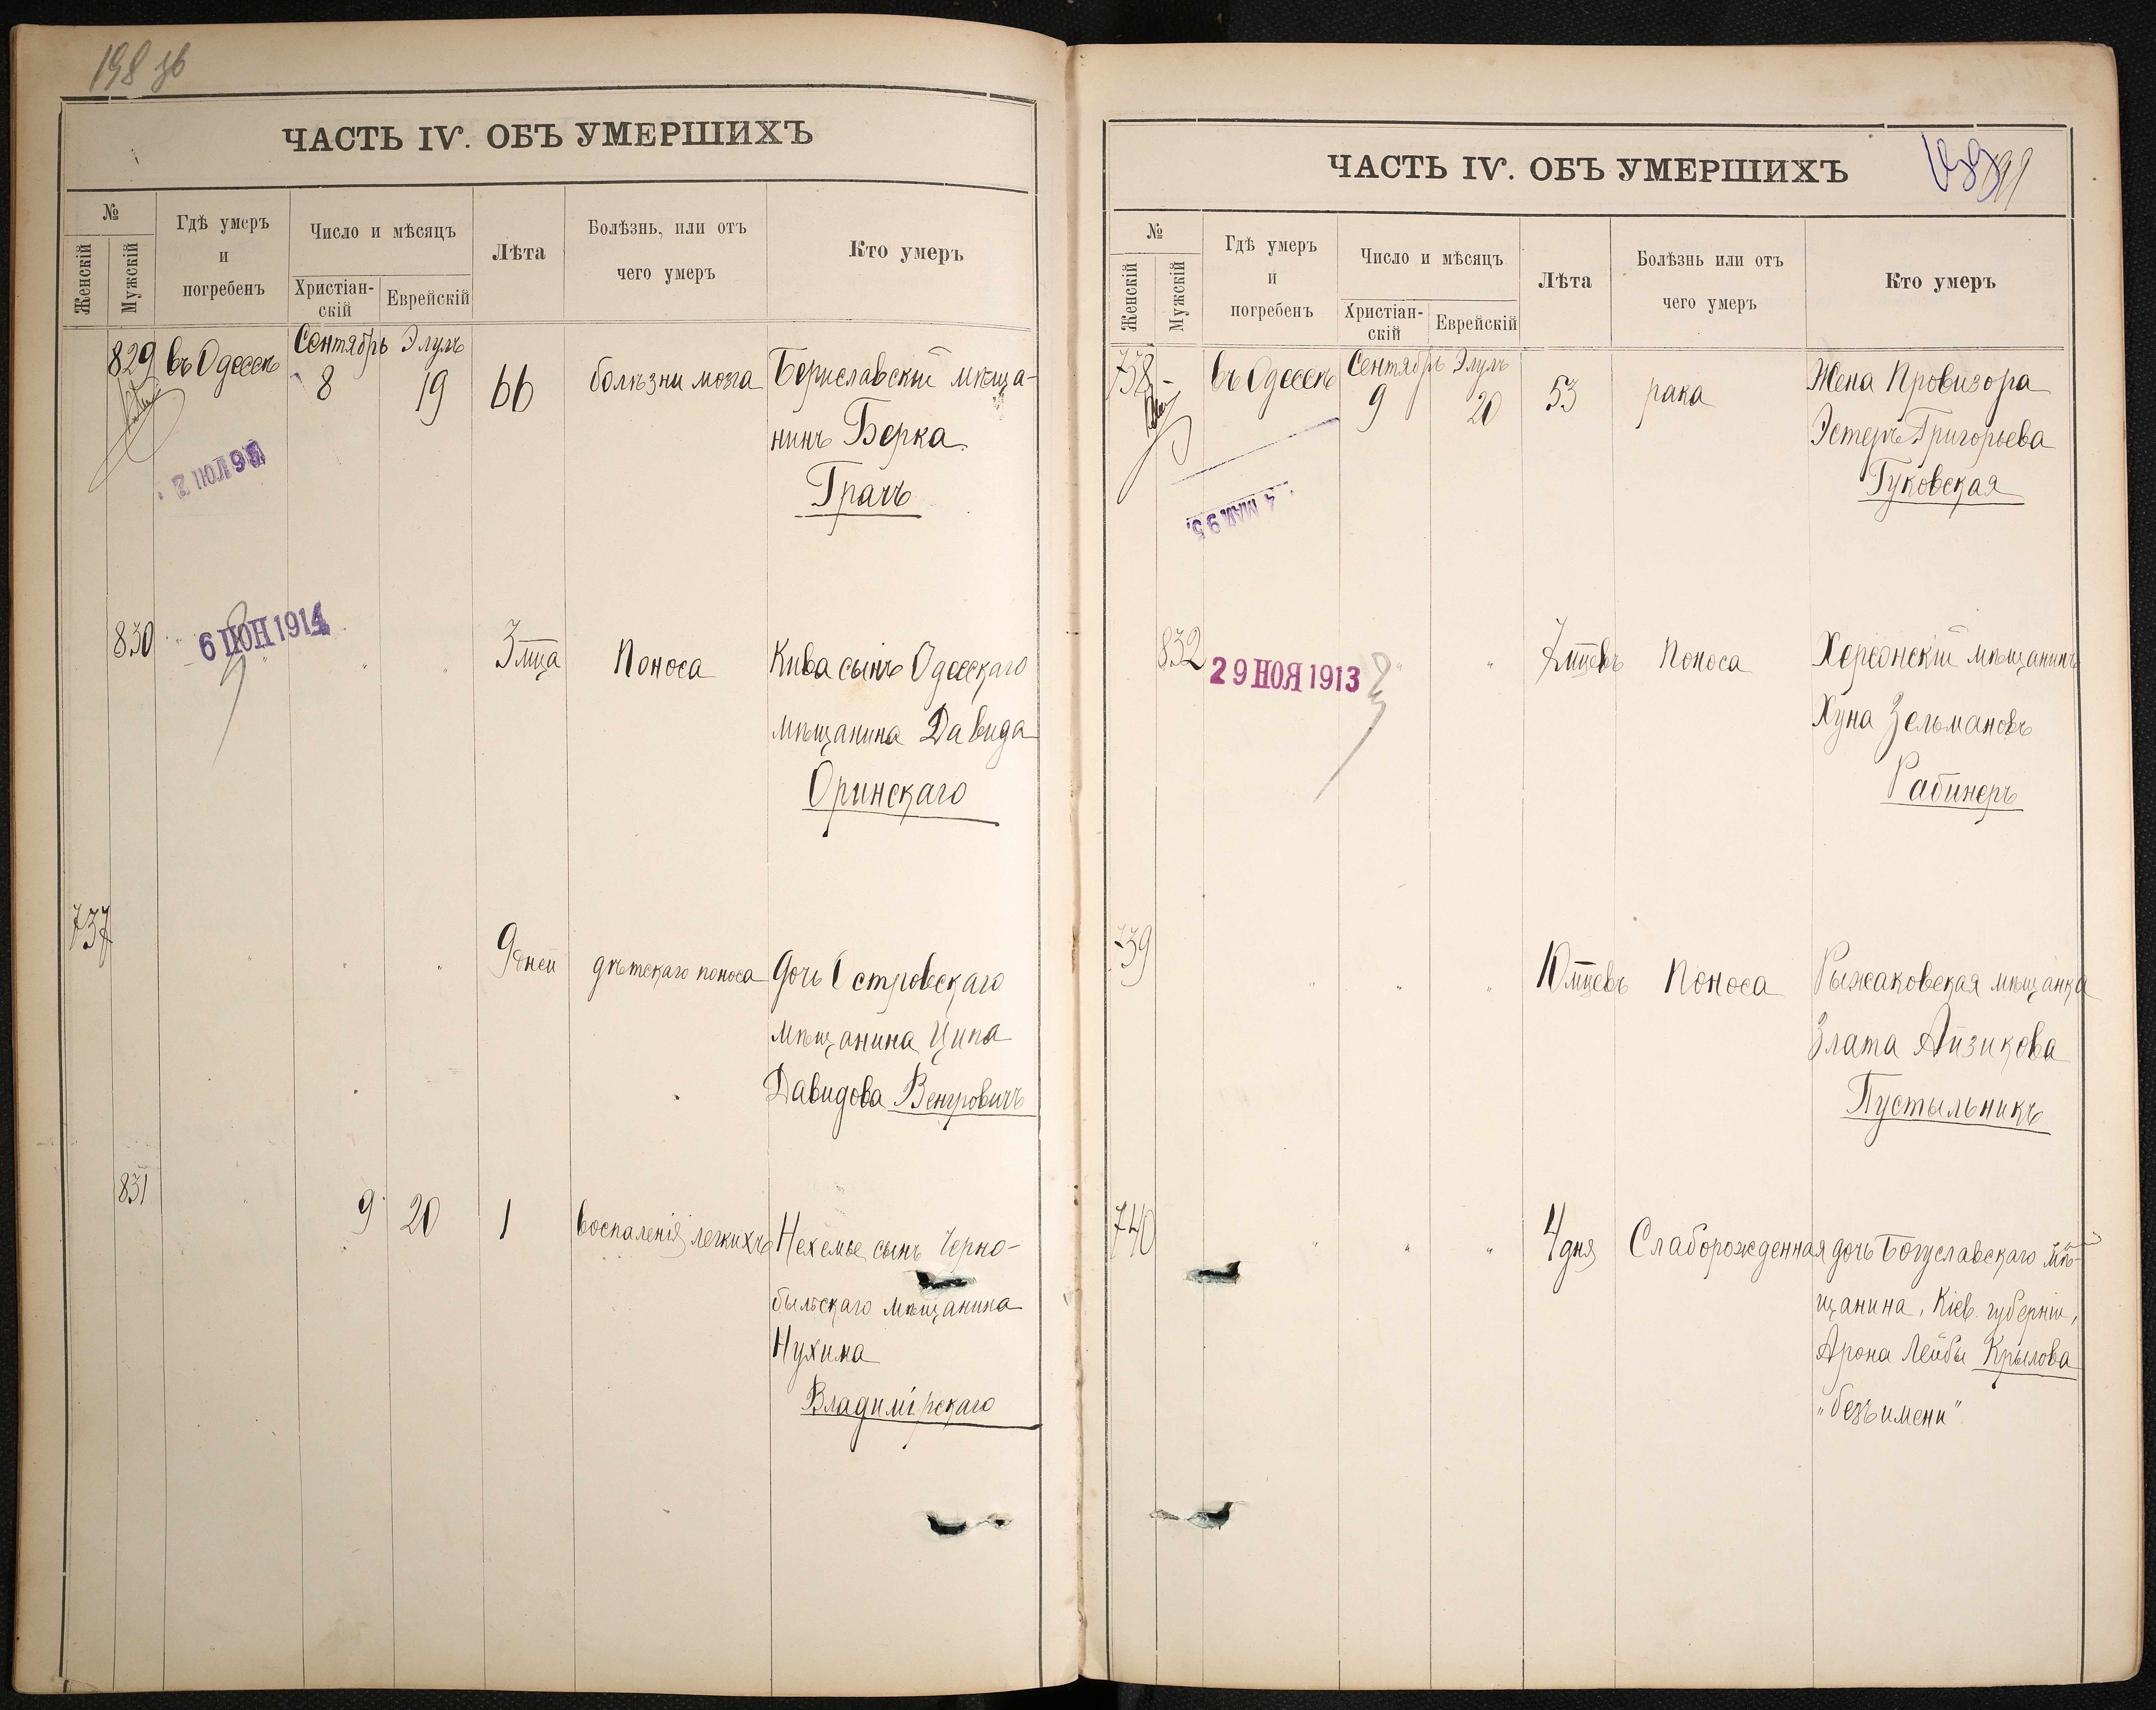 198 об
ЧАСТЬ IV. ОБЪ УМЕРШИХЪ
№
Женскій
Мужскій
Гдѣ умеръ
и
погребенъ
Число и мѣсяцъ
Христіан-
скій
Еврейскій
Лѣта
Болѣзнь, или отъ
чего умеръ
Кто умеръ
829 въ Одессѣ Сентябрь 8 Элулъ 19 66 болѣзни мозга Бериславскій мѣща-
нинъ Берка
Грачъ
830 6 ІЮН 1914 " " 3 м̅ца Поноса Кива сынъ Одесскаго
мѣщанина Давида
Оринскаго
737 " " " 9 дней дѣтскаго поноса Дочь Островскаго
мѣщанина Ципа
Давидова Венгровичъ
831 " 9 20 1 воспаленія легкихъ Нехемье сынъ Черно-
быльскаго мѣщанина
Нухима
Владимірскаго
ЧАСТЬ IV. ОБЪ УМЕРШИХЪ
199
№
Женскій
Мужскій
Гдѣ умеръ
и
погребенъ
Число и мѣсяцъ
Христіан-
скій
Еврейскій
Лѣта
Болѣзнь или отъ
чего умеръ
Кто умеръ
738 въ Одессѣ Сентябрь 9 Элулъ 20 53 рака Жена Провизора
Эстеръ Григорьева
Гуковская
4 МАЙ 95.
832 29 НОЯ 1913 " " 7 м̅цевъ Поноса Херсонскій мѣщанинъ
Хуна Зельмановъ
Рабинеръ
739 " " " 10 м̅цевъ Поноса Рыжаковская мѣщанка
Злата Айзикова
Пустыльникъ
740 " " " 4 дня Слаборожденная дочь Богуславскаго мѣ-
щанина, Кіев. губерніи,
Арона Лейбы Крылова
"безъ имени"